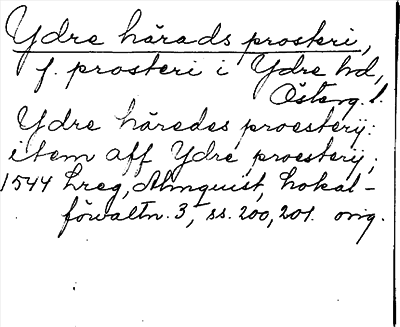 Ydre härads prosteri,
f. prosteri i Ydre hd,
Österg. l.
Ydre häredes proesterij:
item aff Ydre proesterij,
1544 hreg, Almquist, Lokal-
förvaltn. 3, ss. 200, 201. orig.